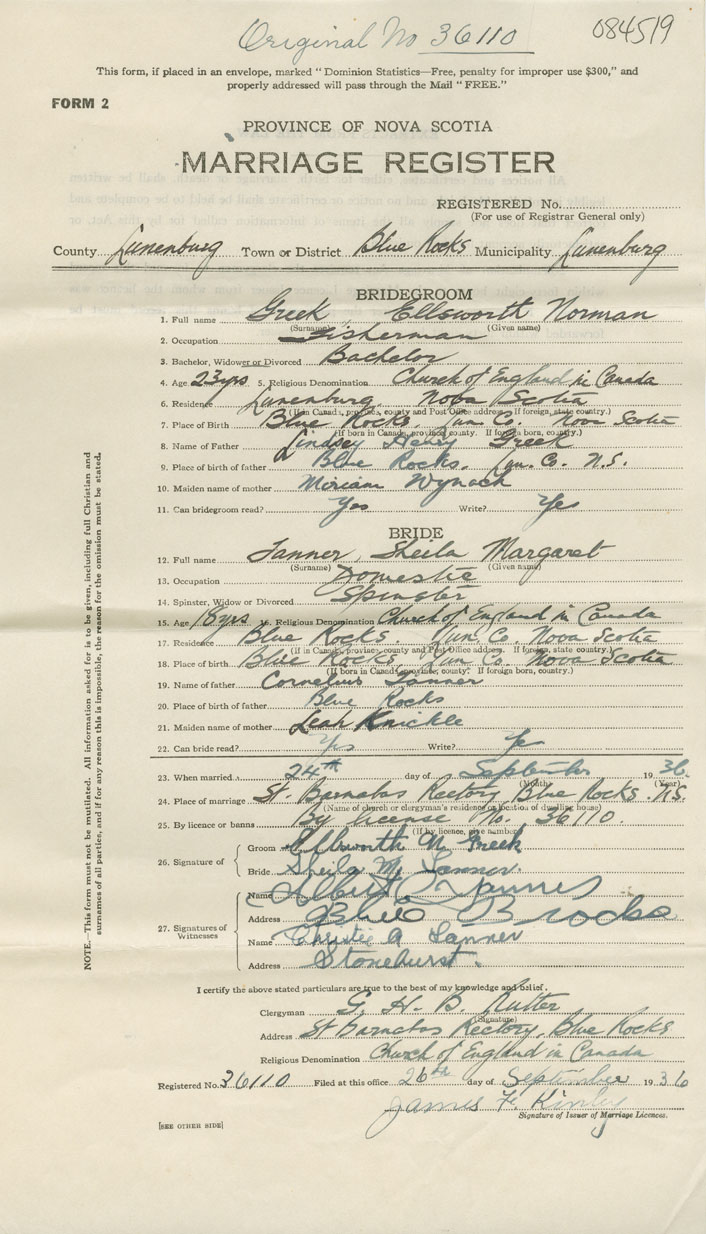 Original No 36110
084519
This form, if placed in an envelope, marked "Dominion Statistics—Free, penalty for improper use $300," and
properly addressed will pass through the Mail "FREE."
FORM 2
PROVINCE OF NOVA SCOTIA
MARRIAGE REGISTER
REGISTERED No.
(For use of Registrar General only)
County Lunenburg Town or District Blue Rocks Municipality Lunenburg
BRIDEGROOM
1. Full name Greek Ellsworth Norman
(Surname) (Given name)
2. Occupation Fisherman
3. Bachelor, Widower or Divorced Bachelor
4. Age 23yrs 5. Religious Denomination Church of England in Canada
6. Residence Lunenburg. Nova Scotia
(If in Canada, province, county and Post Office address. If foreign, state country.)
7. Place of Birth Blue Rocks. Lun. Co. Nova Scotia
(If born in Canada, province, county. If foreign born, country.)
8. Name of Father Lindsey Henry Greek
9. Place of birth of father Blue Rocks. Lun. Co. N.S.
10. Maiden name of mother Miriam Wynach
11. Can bridegroom read? Yes Write? Yes
BRIDE
12. Full name Tanner, Sheila Margaret
(Surname) (Given name)
13. Occupation Domestic
14. Spinster, Widow or Divorced Spinster
15. Age 18yrs 16. Religious Denomination Church of England in Canada
17. Residence Blue Rocks. Lun. Co. Nova Scotia
(If in Canada, province, county and Post Office address. If foreign, state country.)
18. Place of birth Blue Rocks, Lun. Co. Nova Scotia
(If born in Canada, province, county. If foreign born, country.)
19. Name of father Cornelius Tanner
20. Place of birth of father Blue Rocks
21. Maiden name of mother Leah Knickle
22. Can bride read? Yes Write? Yes
23. When married 24th day of September 1936.
(Month) (Year)
24. Place of marriage St. Barnabas Rectory Blue Rocks. N.S.
(Name of church or clergyman's residence or location of dwelling house)
25. By licence or banns By license No. 36110.
(If by licence, give number)
26. Signature of
Groom Ellsworth N. Greek
Bride Sheila M. Tanner.
27. Signatures of Witnesses
Name Albert
Address Blue Rocks
Name Christie A Tanner
Address Stonehurst.
I certify the above stated particulars are true to the best of my knowledge and belief.
Clergyman G. H. B. Rutter
(Signature)
Address St Barnabas Rectory, Blue Rocks
Religious Denomination Church of England in Canada
Registered No. 36110 Filed at this office 26th day of September 1936
James F. Kinley
Signature of Issuer of Marriage Licences.
[SEE OTHER SIDE]
NOTE.—This form must not be mutilated. All information asked for is to be given, including full Christian and
surnames of all parties, and if for any reason this is impossible, the reason for the omission must be stated.